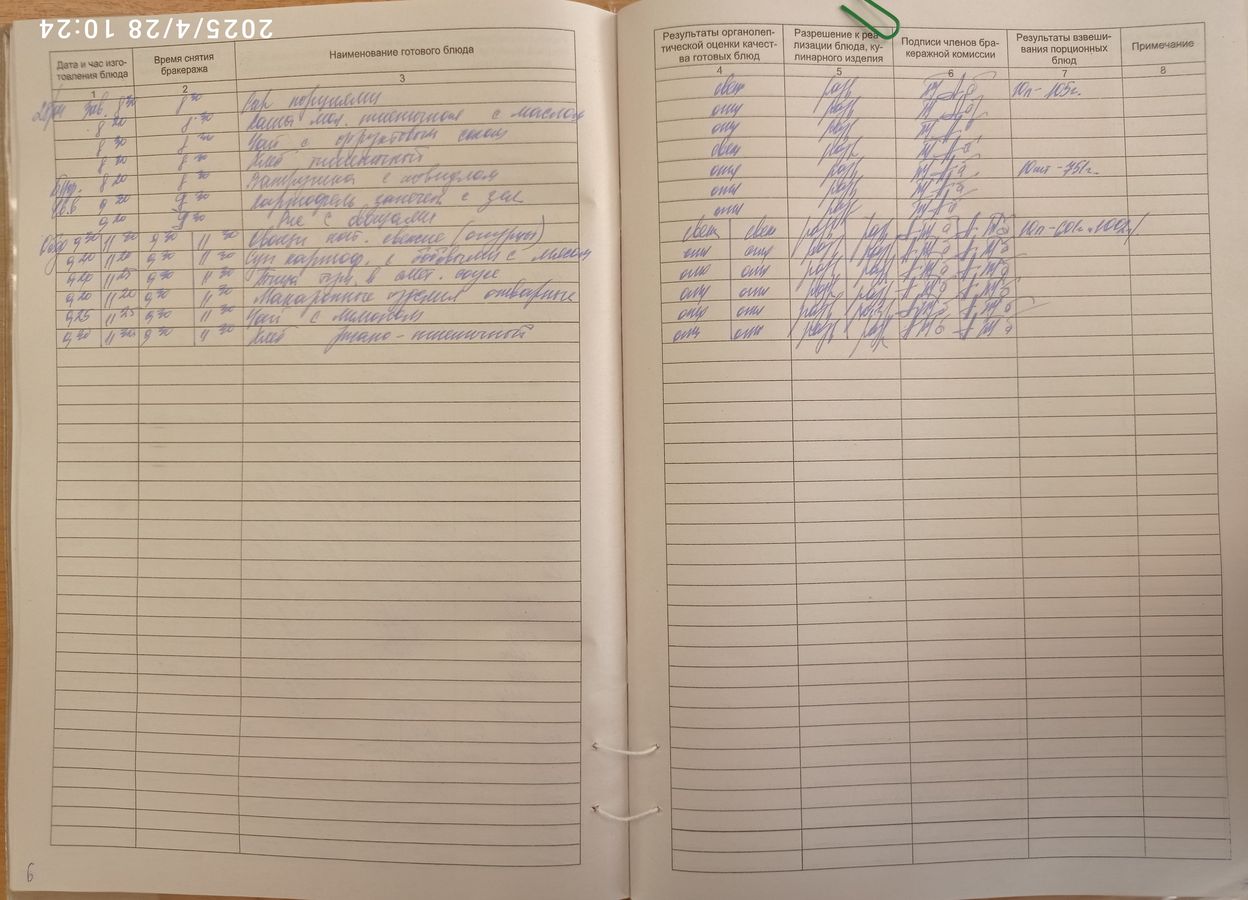 2025/4/28 10:24
Дата и час изго-
товления блюда
Время снятия
бракеража
Наименование готового блюда
1 2 3
28/04 Зав. 8 30 8 30 Сыр порциями
8 20 8 30 Каша мол. пшеничная с маслом
8 30 8 30 Чай с фруктовым соком
8 30 8 30 Хлеб пшеничный
8 20 8 30 Ватрушка с повидлом
9 20 9 30 Картофель запечен. с зел.
9 20 9 30 с овощами
Обед 9 30 11 30 9 30 11 30 Овощи нат. свежие (огурцы)
9 20 11 20 9 30 11 30 Суп картоф. с бобовыми с мясом
9 20 11 25 9 30 11 30 Птица туш. в смет. соусе
9 20 11 20 9 30 11 30 Макаронные изделия отварные
9 25 11 25 9 30 11 30 Чай с лимоном
9 30 11 30 9 30 11 30 Хлеб ржано-пшеничный
6
Результаты органолеп-
тической оценки качест-
ва готовых блюд
Разрешение к реа-
лизации блюда, ку-
линарного изделия
Подписи членов бра-
керажной комиссии
Результаты взвеши-
вания порционных
блюд
Примечание
4 5 6 7 8
свеж разр 10п - 105г.
отл разр
отл разр
свеж разр
отл разр 10шт - 751г.
отл разр
отл разр
свеж свеж разр разр
отл отл разр разр
отл отл разр разр
отл отл разр разр
отл отл разр разр
отл отл разр разр